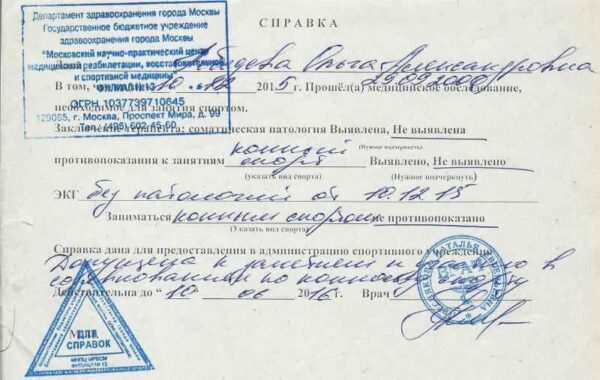 СПРАВКА
Департамент здравоохранения города Москвы
Государственное бюджетное учреждение
здравоохранения города Москвы
"Московский научно-практический центр
медицинской реабилитации, восстановительной
и спортивной медицины"
ФИЛИАЛ № 13
ОГРН 1037739710645
129085, г. Москва, Проспект Мира, д. 99
Тел. (495) 602-45-60
Дана Лебедева Ольга Александровна
29.09.2000
В том, что 10. 12 2015г. Прошёл(а) медицинское обследование,
необходимое для занятия спортом.
Заключение терапевта: соматическая патология Выявлена, Не выявлена
(Нужное подчеркнуть)
противопоказания к занятиям конный спорт Выявлено, Не выявлено
(указать вид спорта) (Нужное подчеркнуть)
ЭКГ без патологий от 10.12.15
Заниматься конным спортом не противопоказано
(Указать вид спорта)
Справка дана для предоставления в администрацию спортивного учреждения
Допущена к занятиям и участию в
соревнованиях по конному спорту
Действительна до "10 06 2016г. Врач
М.П.
ДЛЯ
СПРАВОК
МНПЦ МРВСМ
ФИЛИАЛ № 13
НАТАЛЬЯ
ВРАЧ